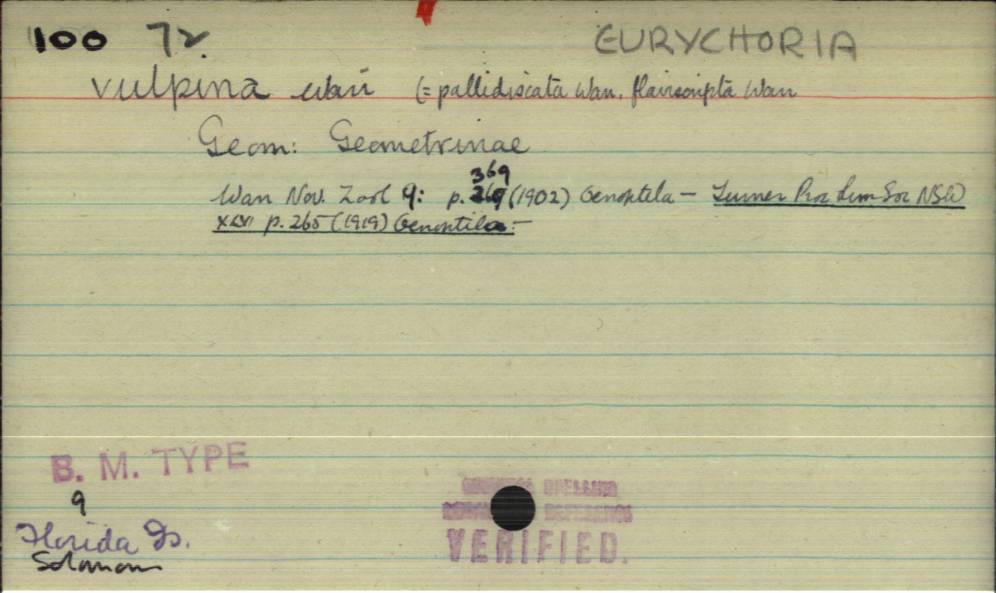 100 72 EURYCHORIA
vulpina Warr (= pallidiscata Warr. flaviscripta Warr
Geom: Geometrinae
369
Warr Nov. Zool 9: p. 269 (1902) Oenoptila — Turner Proc Linn Soc NSW
XLVI p. 265 (1919) Oenoptila:-
B. M. TYPE
Florida Is.
Solomons
VERIFIED.